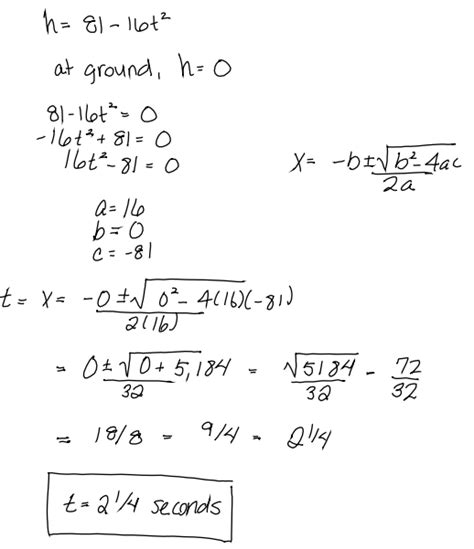 h = 81 - 16t²
at ground, h = 0
81 - 16t² = 0
-16t² + 81 = 0
16t² - 81 = 0
x = -b ± √b² - 4ac / 2a
a = 16
b = 0
c = -81
t = x = -0 ± √0² - 4(16)(-81) / 2(16)
= 0 ± √0 + 5,184 / 32 = √5184 / 32 = 72 / 32
= 18/8 = 9/4 = 2 1/4
t = 2 1/4 seconds